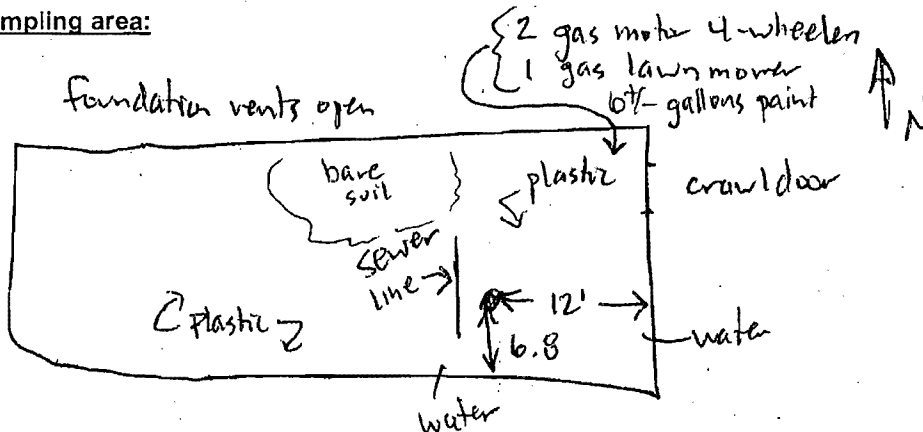 mpling area:
2 gas motor 4-wheeler
1 gas lawnmower
6+/- gallons paint
foundation vents open
N
bare
soil
plastic
crawldoor
sewer
line
12'
plastic
6.8
water
water